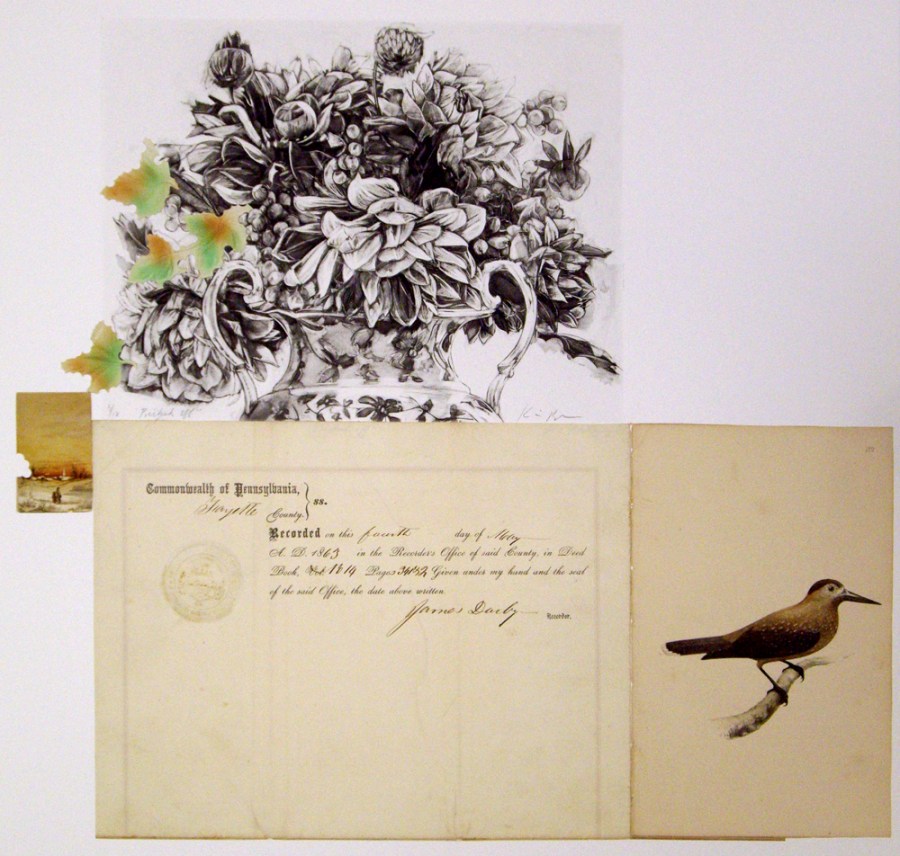 Commonwealth of Pennsylvania,
Fayette County. } ss.
Recorded on this fourth day of May
A. D. 1863 in the Recorder's Office of said County, in Deed
Book, Pages Given under my hand and the seal
of the said Office, the date above written.
James Darby Recorder.